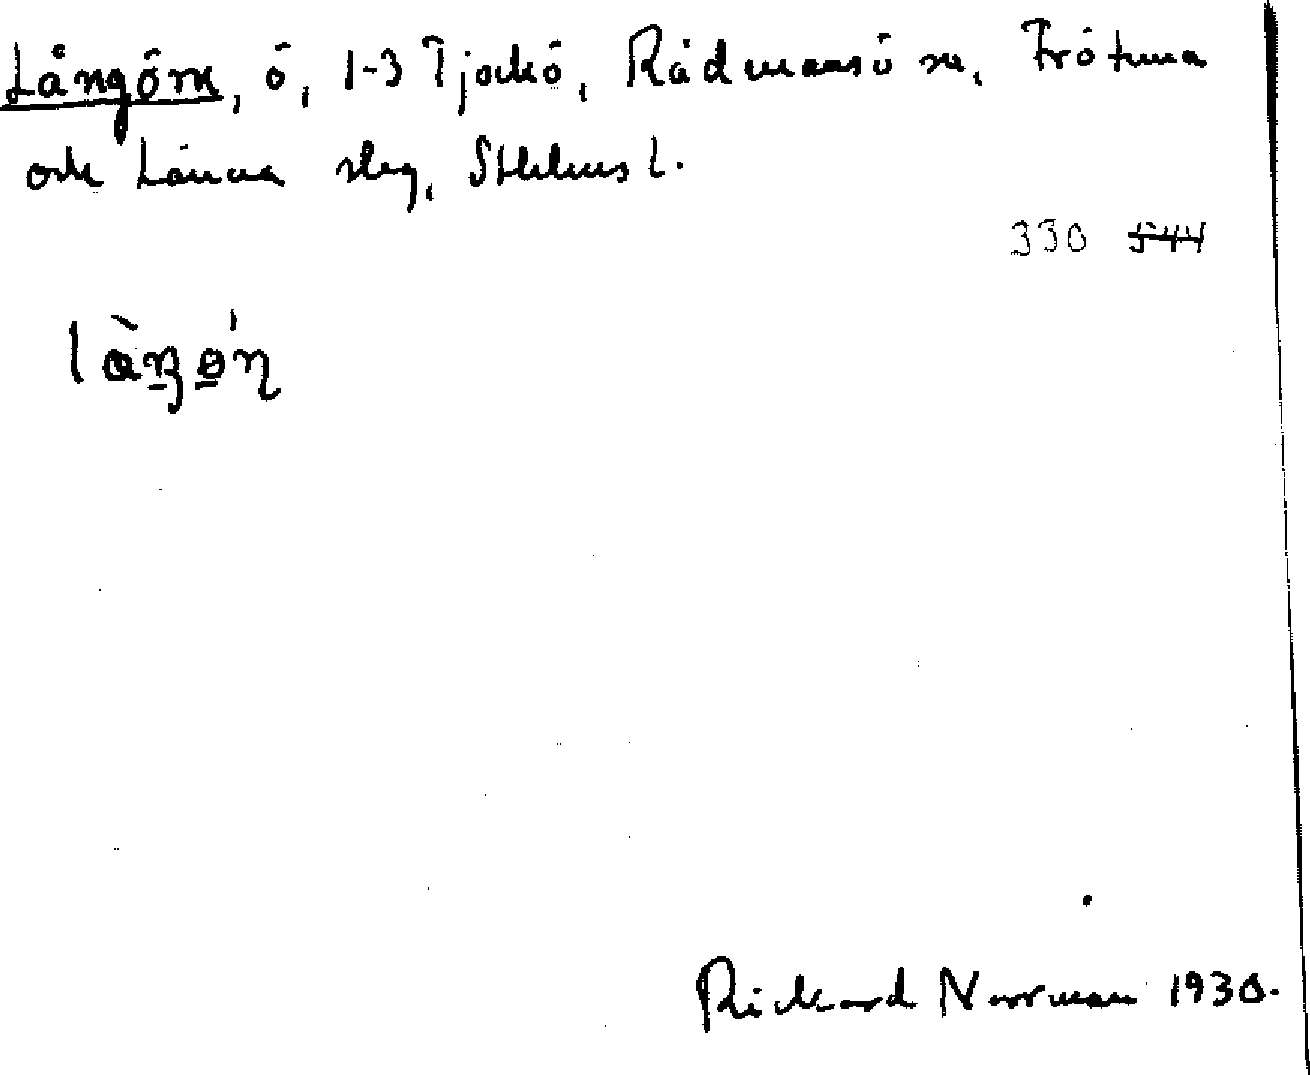 Långörn, ö, 1-3 Tjockö, Rådmansö sn, Frötuna
och Länna slg, Sthlms l.
330 544
Rickard Norrman 1930.